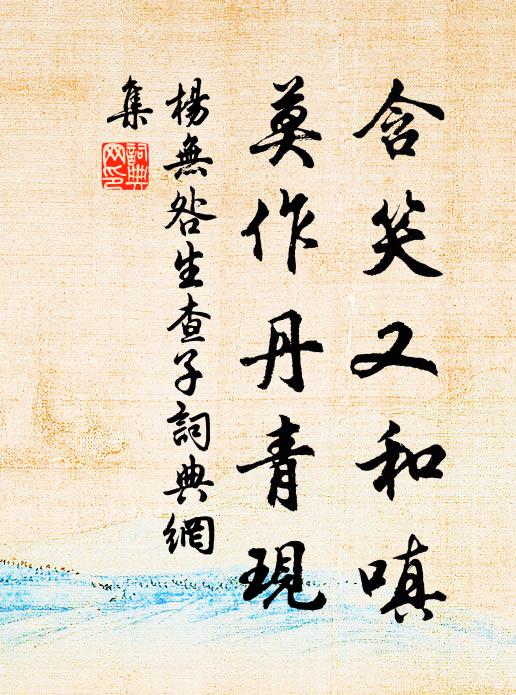 含笑又和嗔
莫作丹青現
楊無咎生查子詞典網
集
詞典
網印